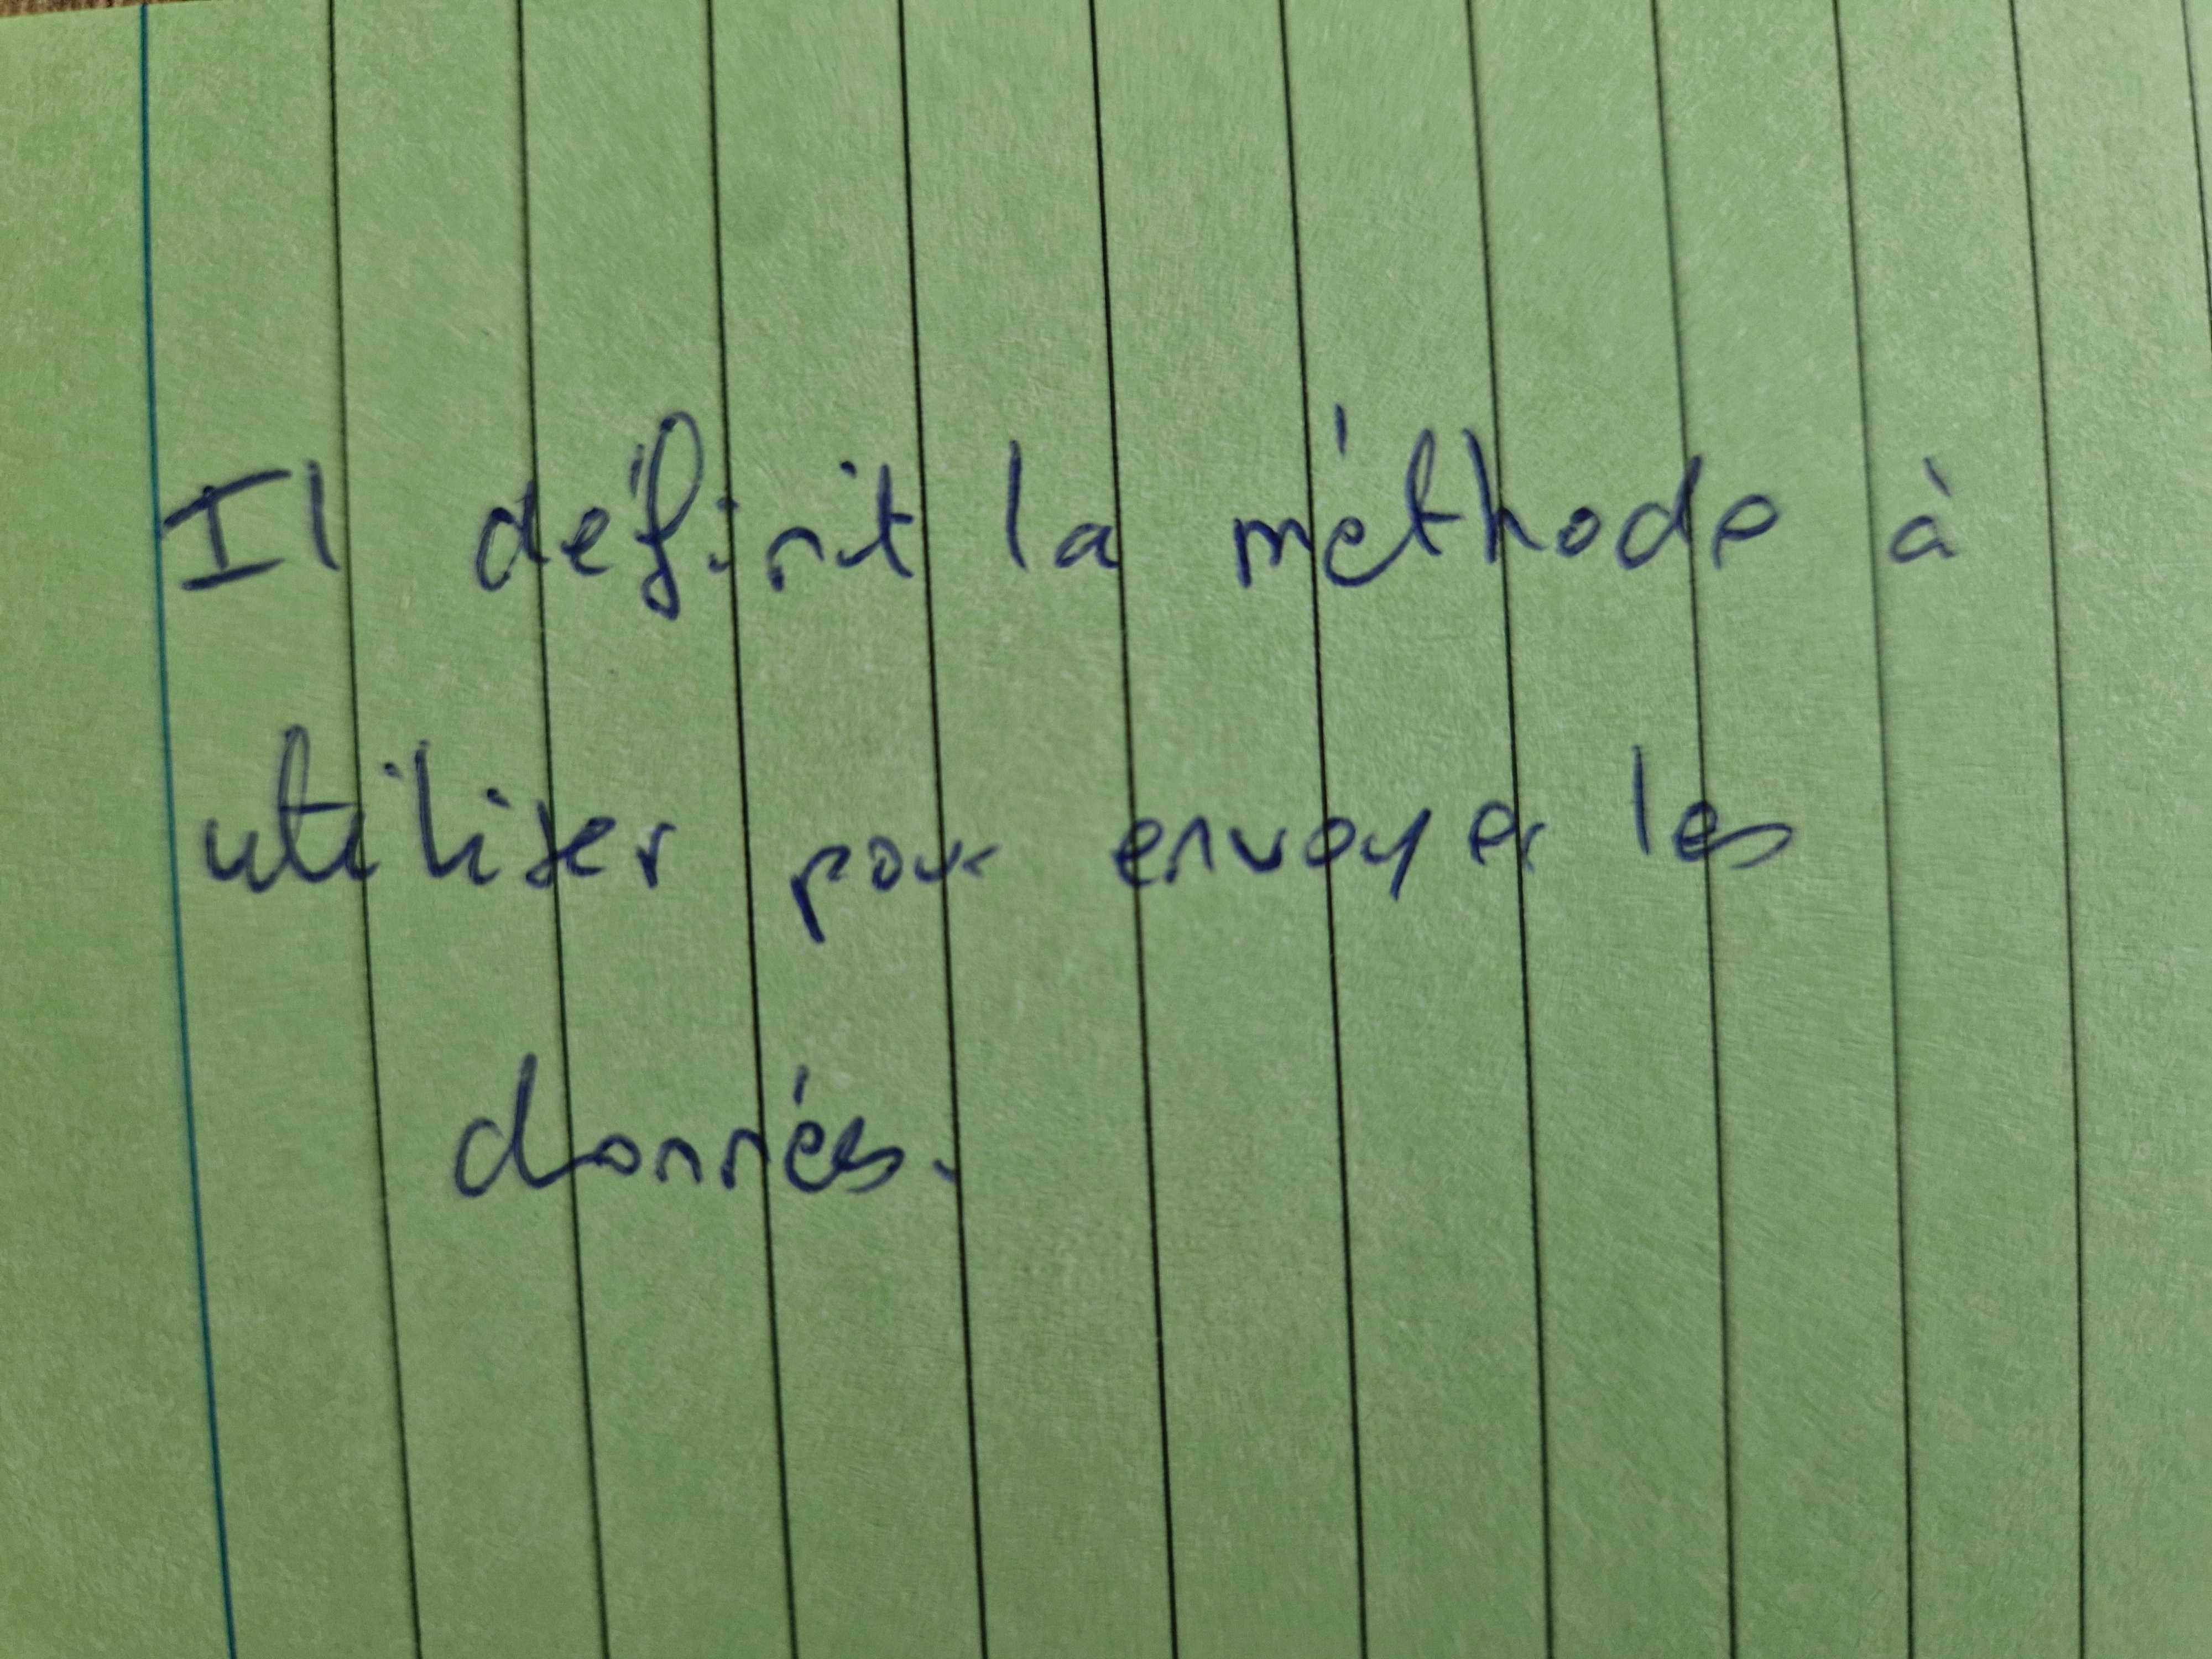 Il définit la méthode à
utiliser pour envoyer les
données.